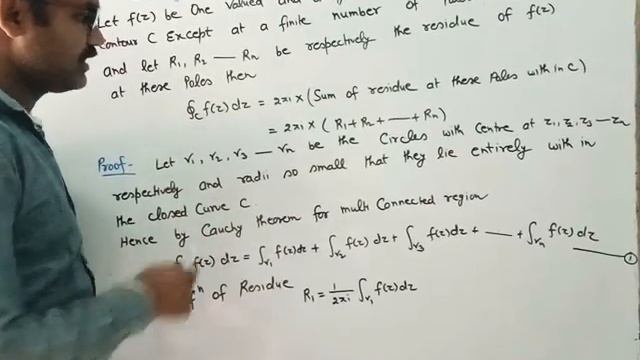 Let f(z) be One valued and
contour C Except at a finite number of
and let R₁, R₂ — Rn be respectively the residue of f(z)
at these Poles then
∮c f(z) dz = 2πi × (Sum of residue at these Poles with in C)
= 2πi × (R₁ + R₂ + — + Rn)
Proof- Let r₁, r₂, r₃ — rn be the Circles with Centre at z₁, z₂, z₃ — zn
respectively and radii so small that they lie entirely with in
the closed Curve C.
Hence by Cauchy theorem for multi Connected region
f(z) dz = ∫r₁ f(z) dz + ∫r₂ f(z) dz + ∫r₃ f(z) dz + — + ∫rn f(z) dz — ①
of Residue R₁ = 1/2πi ∫r₁ f(z) dz